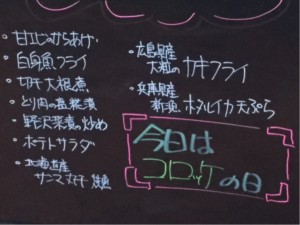 ・甘エビのからあげ
・白身魚フライ
・切干大根煮
・とり肉の
・野沢菜漬の炒め
・ポテトサラダ
・北海道産
サンマ 焼
・広島県産
大粒のカキフライ
・兵庫県産
ホタルイカ天ぷら
今日は
コロッケの日